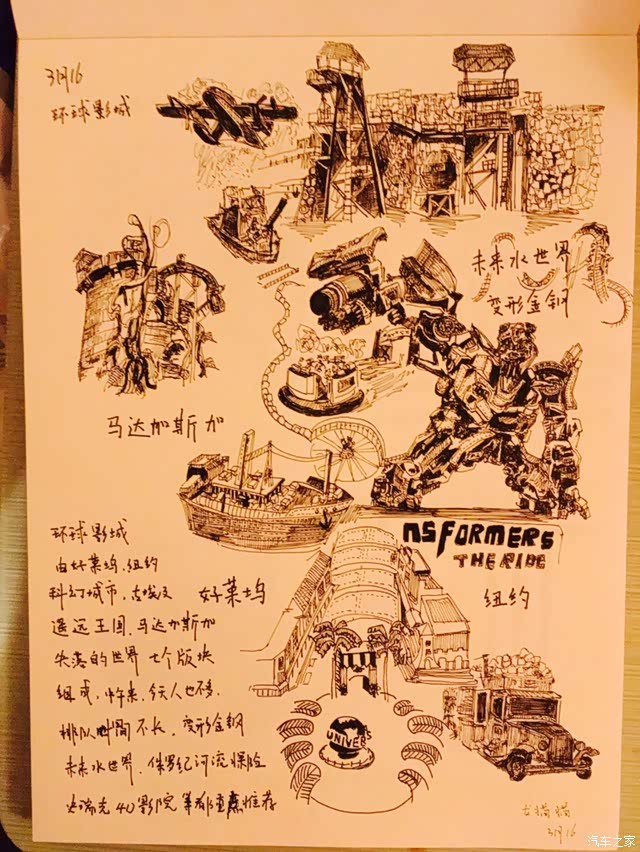 3月16
环球影城
未来水世界
变形金钢
马达加斯加
NSFORMERS
THE RIDE
好莱坞
纽约
环球影城
由好莱坞、纽约
科幻城市、古埃及
遥远王国、马达加斯加
失落的世界 七个版块
组成,中午来,今天人也不多,
排队时间不长,变形金钢
未来水世界、侏罗纪河流探险
史瑞克4D影院 等都重点推荐
UNIVERS
3月16
汽车之家